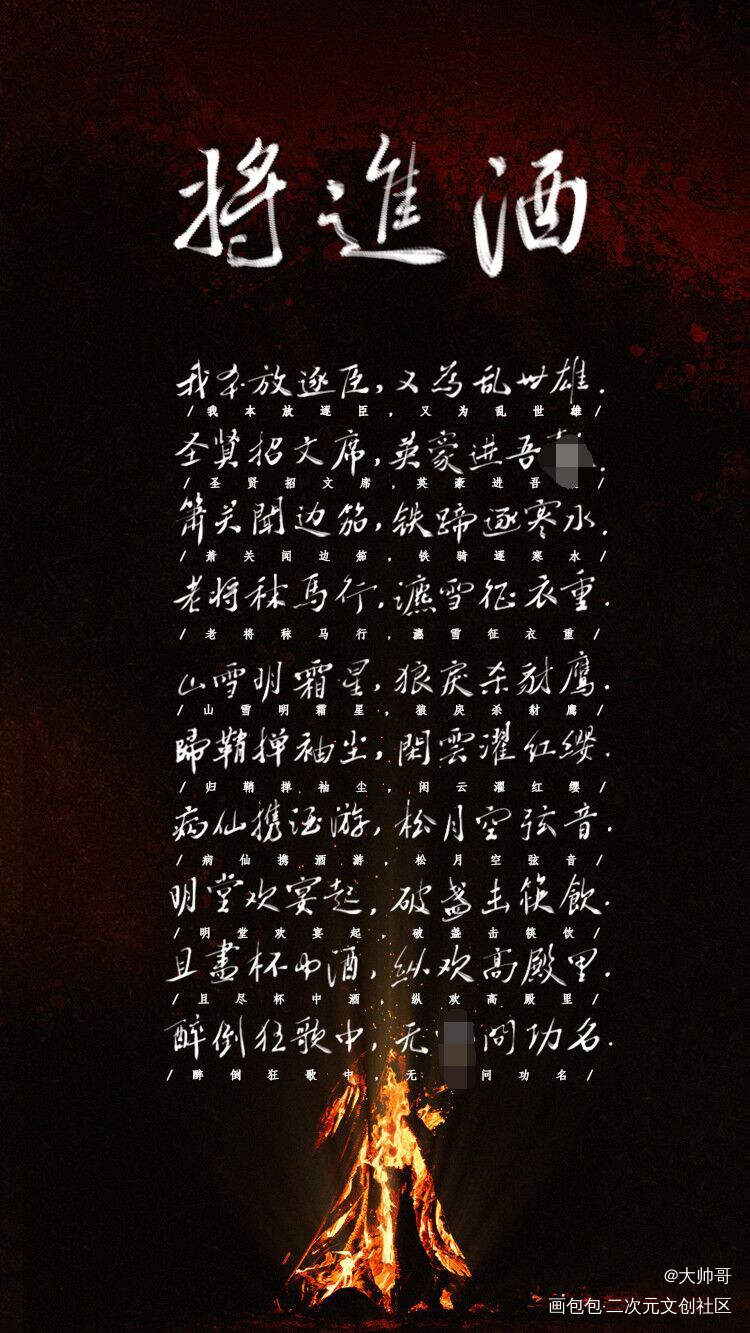 将進酒
我本放逐臣，又為乱世雄.
/我本放逐臣，又为乱世雄/
圣贤招文席，英豪进吾
/圣贤招文席，英豪进吾 /
箫关聞边笳，铁蹄逐寒水.
/萧关闻边笳，铁骑逐寒水/
老将秣马行.瀌雪征衣重.
/老将秣马行，瀌雪征衣重/
山雪明霜星，狼戾杀豺鹰.
/山雪明霜星，狼戾杀豺鹰/
歸鞘掸袖尘，閑雲濯红缨.
/归鞘掸袖尘，闲云濯红缨/
病仙携酒游，松月空弦音.
/病仙携酒游，松月空弦音/
明堂欢宴起，破盏击筷飲.
/明堂欢宴起，破盏击筷饮/
且盡杯中酒，纵欢高殿里.
/且尽杯中酒，纵欢高殿里/
醉倒狂歌中，无 问功名.
/醉倒狂歌中，无 问功名/
@大帅哥
画包包·二次元文创社区